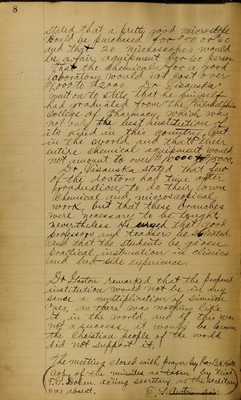 8
stated that a pretty good microscope
could be purchased for
and that 20 microscopes would
be a fair equipment for 60 persons
That the chemicals for a good
laboratory would not cost over
to $2000. Dr.
went on to state that he himself
had graduated from the Philadelphia
College of Pharmacy which was
not only the best institution of
its kind in this country, but
in the world, and that their
entire chemical equipment would
not amount to over
Dr. stated that few
of the doctors had time after
graduation to do their own
chemical and microscopical
work but that these branches
were necessary to be taught
nevertheless. He urged that good
professors and teachers be
and that the students be given
practical instruction in clinics
and out-side experience.
Dr. remarked that the proposed
institution would not be in any
sense a multiplication of similar
ones, as there was nothing like
it in the world and if this was
not a success, it would be because
the Christian people of the world
did not support it.
The meeting closed with prayer by
Copy of the minutes as taken by Miss
acting secretary as the secretary
was absent.